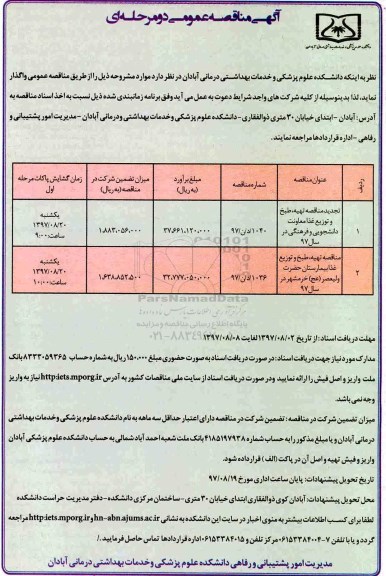 آگهی مناقصه عمومی دو مرحله‌ای
نظر به اینکه دانشکده علوم پزشکی و خدمات بهداشتی درمانی آبادان در نظر دارد موارد مشروحه ذیل را از طریق مناقصه عمومی واگذار
نماید، لذا بدینوسیله از کلیه شرکت های واجد شرایط دعوت به عمل می آید وفق برنامه زمانبندی شده ذیل نسبت به اخذ اسناد مناقصه به
آدرس: آبادان - ابتدای خیابان ۳۰ متری ذوالفقاری - دانشکده علوم پزشکی و خدمات بهداشتی ودرمانی آبادان - مدیریت امور پشتیبانی و
رفاهی - اداره قراردادها مراجعه نمایند.
ردیف عنوان مناقصه شماره مناقصه مبلغ برآورد (به ریال) میزان تضمین شرکت در مناقصه (به ریال) زمان گشایش پاکات مرحله اول
۱ تجدید مناقصه تهیه، طبخ و توزیع غذا معاونت دانشجویی و فرهنگی در سال ۹۷ ۳۷.۶۶۱.۱۲۰.۰۰۰ ۱.۸۸۳.۰۵۶.۰۰۰ یکشنبه ۱۳۹۷/۰۸/۲۰ ساعت ۹:۰۰
۲ مناقصه تهیه، طبخ و توزیع غذا بیمارستان حضرت ولیعصر (عج) خرمشهر در سال ۹۷ ۳۲.۷۷۷.۰۵۰.۰۰۰ ۱.۶۳۸.۸۵۲.۵۰۰ یکشنبه ۱۳۹۷/۰۸/۲۰ ساعت ۱۰:۰۰
ParsNamadData
پایگاه اطلاع رسانی مناقصه و مزایده
مهلت دریافت اسناد: از تاریخ ۱۳۹۷/۰۸/۰۲ لغایت ۱۳۹۷/۰۸/۰۸
مدارک مورد نیاز جهت دریافت اسناد: در صورت دریافت اسناد به صورت حضوری مبلغ ۱۵۰.۰۰۰ ریال به شماره حساب ۸۳۳۳۰۵۹۳۶۵ بانک
ملت واریز و اصل فیش را ارائه نمایید ودر صورت دریافت اسناد از سایت ملی مناقصات کشور به آدرس http:iets.mporg.ir نیاز به واریز
وجه نمی باشد.
میزان تضمین شرکت در مناقصه: تضمین شرکت در مناقصه دارای اعتبار حداقل سه ماهه به نام دانشکده علوم پزشکی و خدمات بهداشتی
درمانی آبادان و یا مبلغ مذکور را به حساب شماره ۴۱۸۵۱۹۷۹۳۸ بانک ملت شعبه احمد آباد شمالی به حساب دانشکده علوم پزشکی آبادان
واریز و فیش تهیه و اصل آن در پاکت (الف) قرار داده شود.
تاریخ تحویل پیشنهادات: پایان ساعت اداری مورخ ۹۷/۰۸/۱۹
محل تحویل پیشنهادات: آبادان کوی ذوالفقاری ابتدای خیابان ۳۰ متری - ساختمان مرکزی دانشکده - دفتر مدیریت حراست دانشکده
لطفا برای کسب اطلاعات بیشتر به منوی اخبار در سایت این دانشکده به نشانی hn-abn.ajums.ac.ir و http:iets.mporg.ir مراجعه
گردد و یا با تلفن ۷-۰۶۱۵۳۳۸۴۰۰۴ مرکز تلفن و ۰۶۱۵۳۳۸۴۰۱۵ اداره قراردادها تماس حاصل فرمایید./
مدیریت امور پشتیبانی و رفاهی دانشکده علوم پزشکی و خدمات بهداشتی درمانی آبادان